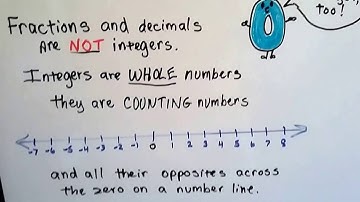 too!
Fractions and decimals
Are NOT integers.
Integers are WHOLE numbers
they are COUNTING numbers
-7 -6 -5 -4 -3 -2 -1 0 1 2 3 4 5 6 7 8
and all their opposites across
the zero on a number line.